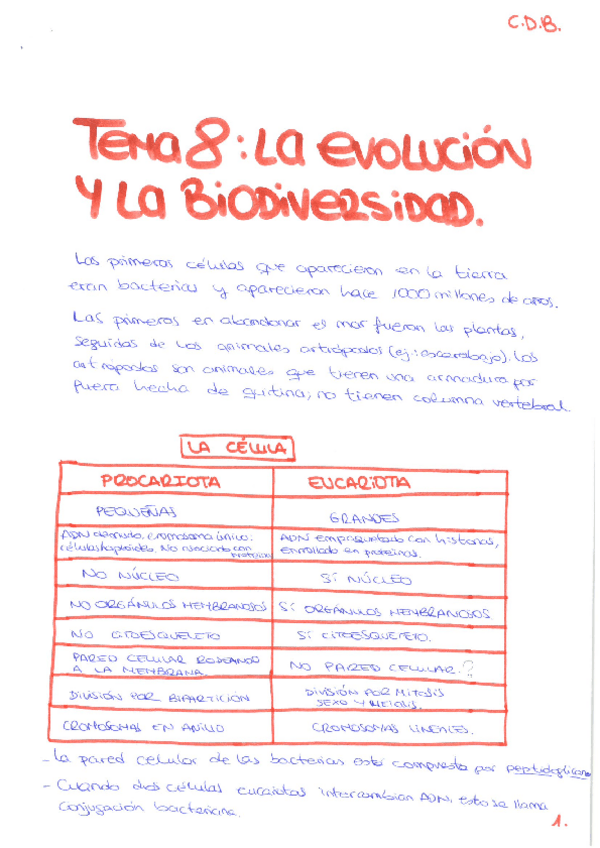 C.D.B.
Tema 8: La evolución
y la Biodiversidad.
Las primeras células que aparecieron en la tierra
eran bacterias y aparecieron hace 1000 millones de años.
Las primeros en abandonar el mar fueron las plantas,
seguidas de los animales artrópodos (ej: escarabajo). Los
artrópodos son animales que tienen una armadura por
fuera hecha de quitina; no tienen columna vertebral.
LA CÉLULA
PROCARIOTA EUCARIOTA
PEQUEÑAS GRANDES
ADN desnudo, cromosoma único: ADN empaquetado con histonas,
células haploides. No asociado con proteínas enrollado en proteínas.
NO NÚCLEO SÍ NÚCLEO
NO ORGÁNULOS MEMBRANOSOS SÍ ORGÁNULOS MEMBRANOSOS
NO CITOESQUELETO SÍ CITOESQUELETO.
PARED CELULAR RODEANDO NO PARED CELULAR.?
A LA MEMBRANA.
DIVISIÓN POR BIPARTICIÓN DIVISIÓN POR MITOSIS
SEXO Y MEIOSIS.
CROMOSOMAS EN ANILLO CROMOSOMAS LINEALES.
- La pared celular de las bacterias está compuesta por peptidoglicano
- Cuando dos células eucariotas intercambian ADN, esto se llama
conjugación bacteriana.
1.